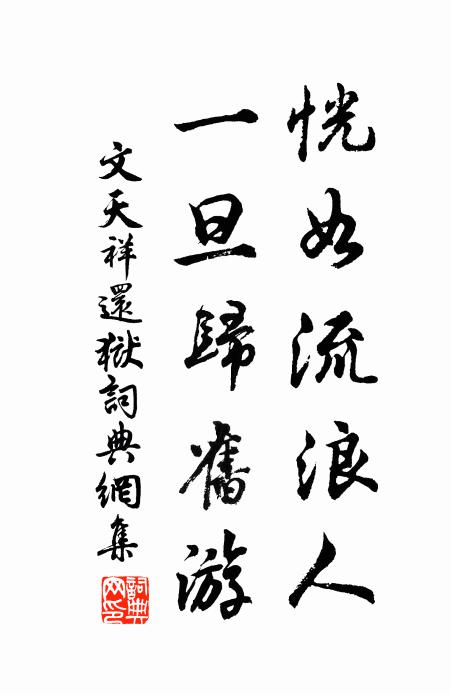 恍如流浪人
一旦歸舊游
文天祥還獄詞典網集
詞典網印